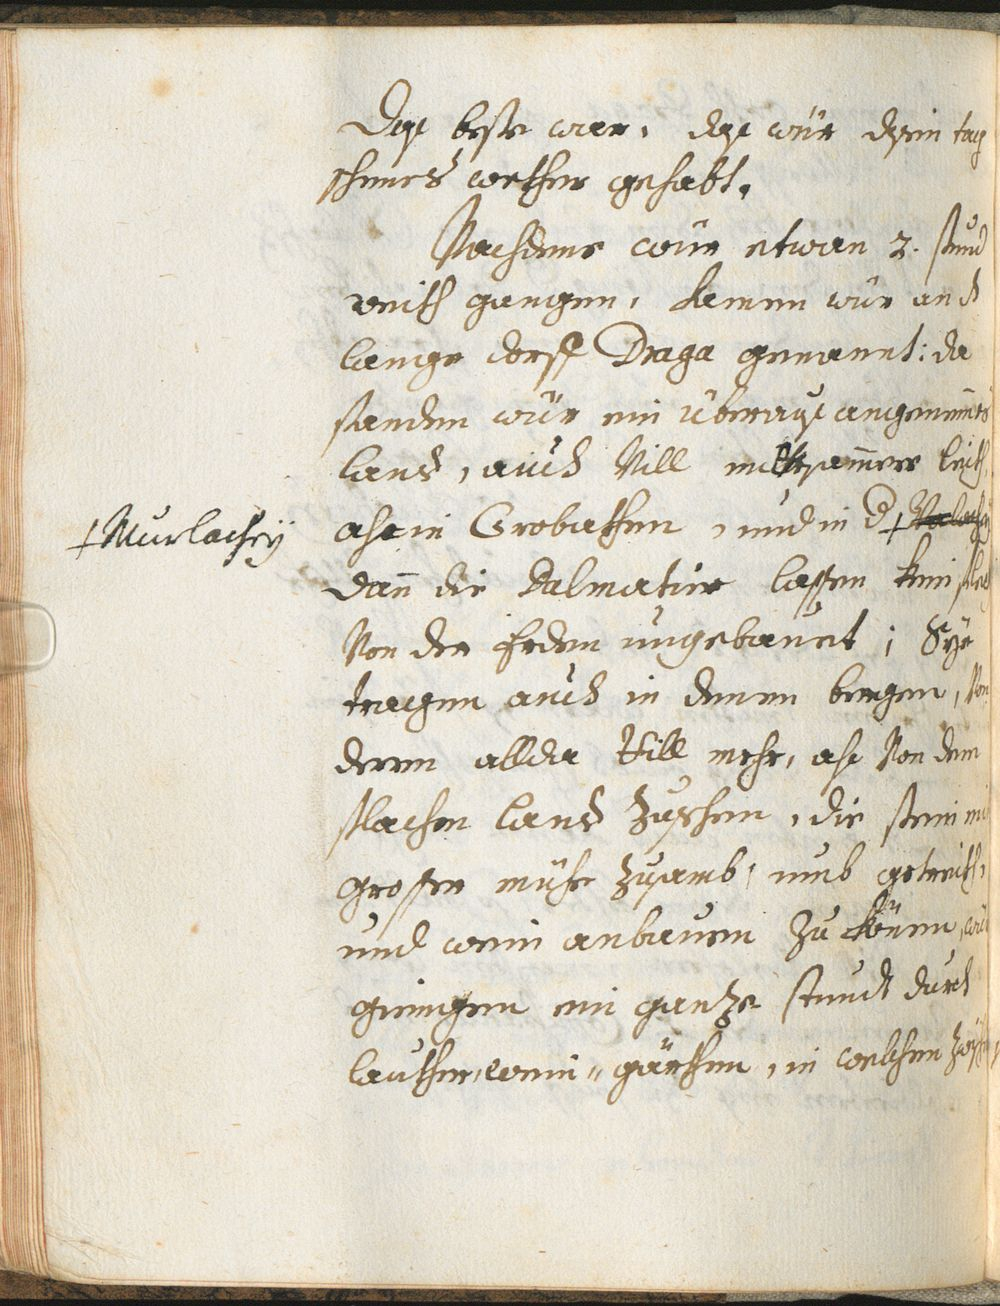 Daß beste war, daß wür dsein tag
schenes wether gehabt.
Nachdeme wür etwan 2. stund
weith gangen, kamen wür an d
lange dorff Draga genannt: da
fanden wür ein überauß angenemmes
land, auch Vill arbeithsamere leith,
alß in Crobathen, und in d. † Walachey
† Murlachey
dann die Dalmatier lassen kein fleckh
Von der Erden ungebauet; Sye
tragen auch in denen bergen, Von
deren allda Vill mehr, alß Von dem
flachen land zusehen, die stein mit
grosser mühe zusamb, umb getreith,
und wein anbauen zu könen, wür
giengen ein gantze stundt durch
lauther, wein-gärthen, in welchen zwisch